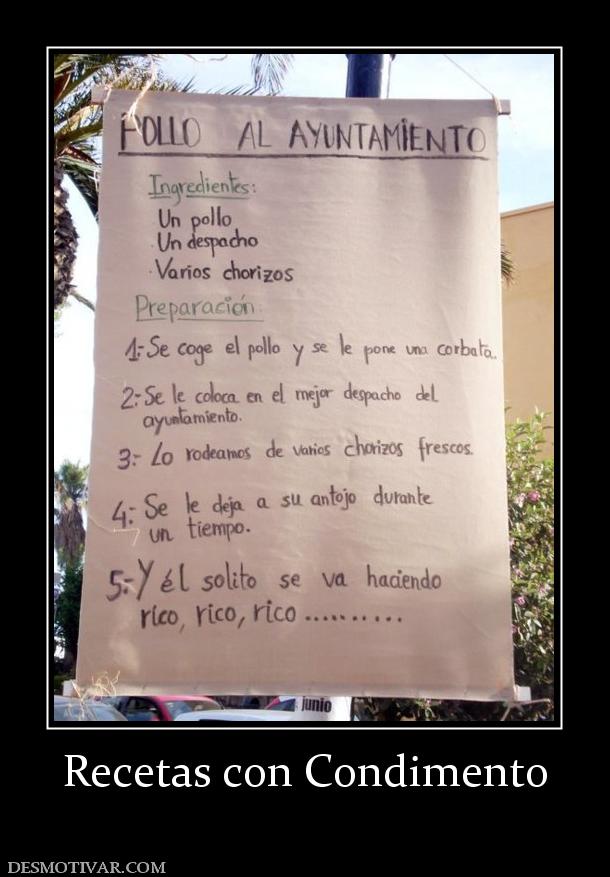 POLLO AL AYUNTAMIENTO
Ingredientes:
Un pollo
· Un despacho
· Varios chorizos
Preparación:
1:- Se coge el pollo y se le pone una corbata..
2:- Se le coloca en el mejor despacho del
ayuntamiento.
3:- Lo rodeamos de varios chorizos frescos.
4:- Se le deja a su antojo durante
un tiempo.
5:- Y él solito se va haciendo
rico, rico, rico ..........
junio
Recetas con Condimento
DESMOTIVAR.COM